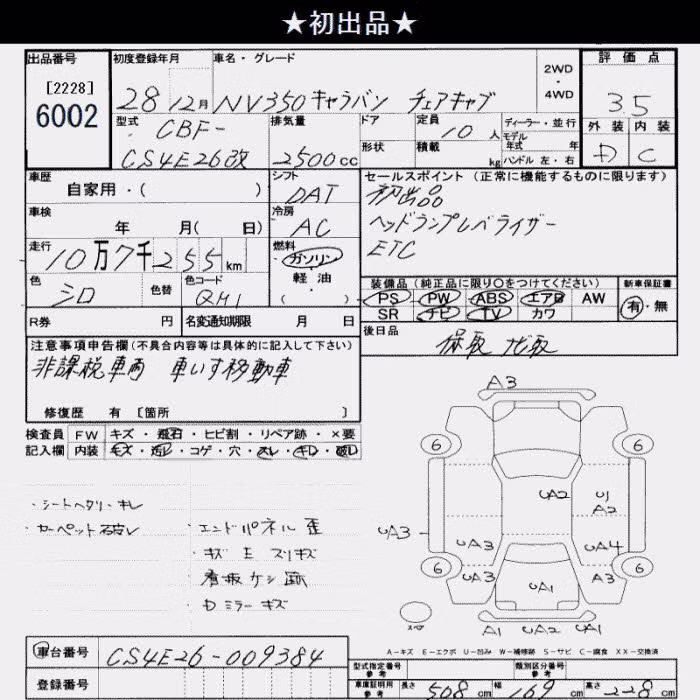 ★初出品★
出品番号 初度登録年月 車名・グレード 2WD・4WD 評価点
[2228]
6002
28 12月 NV350キャラバン チェアキャブ 35
型式 排気量 ドア 定員 ディーラー・並行 外装 内装
CBF-
CS4E26改 2500cc 10人 モデル年式 年 D C
形状 積載 kg ハンドル 左・右
車歴 シフト セールスポイント (正常に機能するものに限ります)
自家用・( ) DAT 初出品
車検 冷房 ヘッドランプレベライザー
年 月( 日) AC ETC
走行 燃料
10万7千255km ガソリン
軽油
・
( )
色 色替 色コード 装備品 (純正品に限り○をつけてください) 新車保証書
シロ QM1 PS PW ABS エアB AW 有・無
SR ナビ TV カワ
R券 円 名変通知期限 月 日 後日品
保取 ナビ取
注意事項申告欄(不具合内容等は具体的に記入して下さい)
非課税車両 車いす移動車
修復歴 有 [箇所 ]
検査員 FW キズ・飛石・ヒビ割・リペア跡・×要
記入欄 内装 モズ・汚レ・コゲ・穴・スレ・キレ・破レ
・シートヘタリ・キレ
・カーペット破レ
・エンドパネル歪
・キズ E スリキズ
・看板ケシ跡
・Dミラーキズ
A3
6 6
UA2 UJ
A2
UA3 UA3 UA4
6 UA3 A3 6
UA1
スペア
A1 UA2 UA1
A-キズ E-エクボ U-凹み W-補修跡 S-サビ C-腐食 XX-交換済
車台番号 CS4E26-009384
登録番号
型式指定番号 参考 類別区分番号 参考
車庫証明用 参考 長さ 508cm 幅 169cm 高さ 228cm